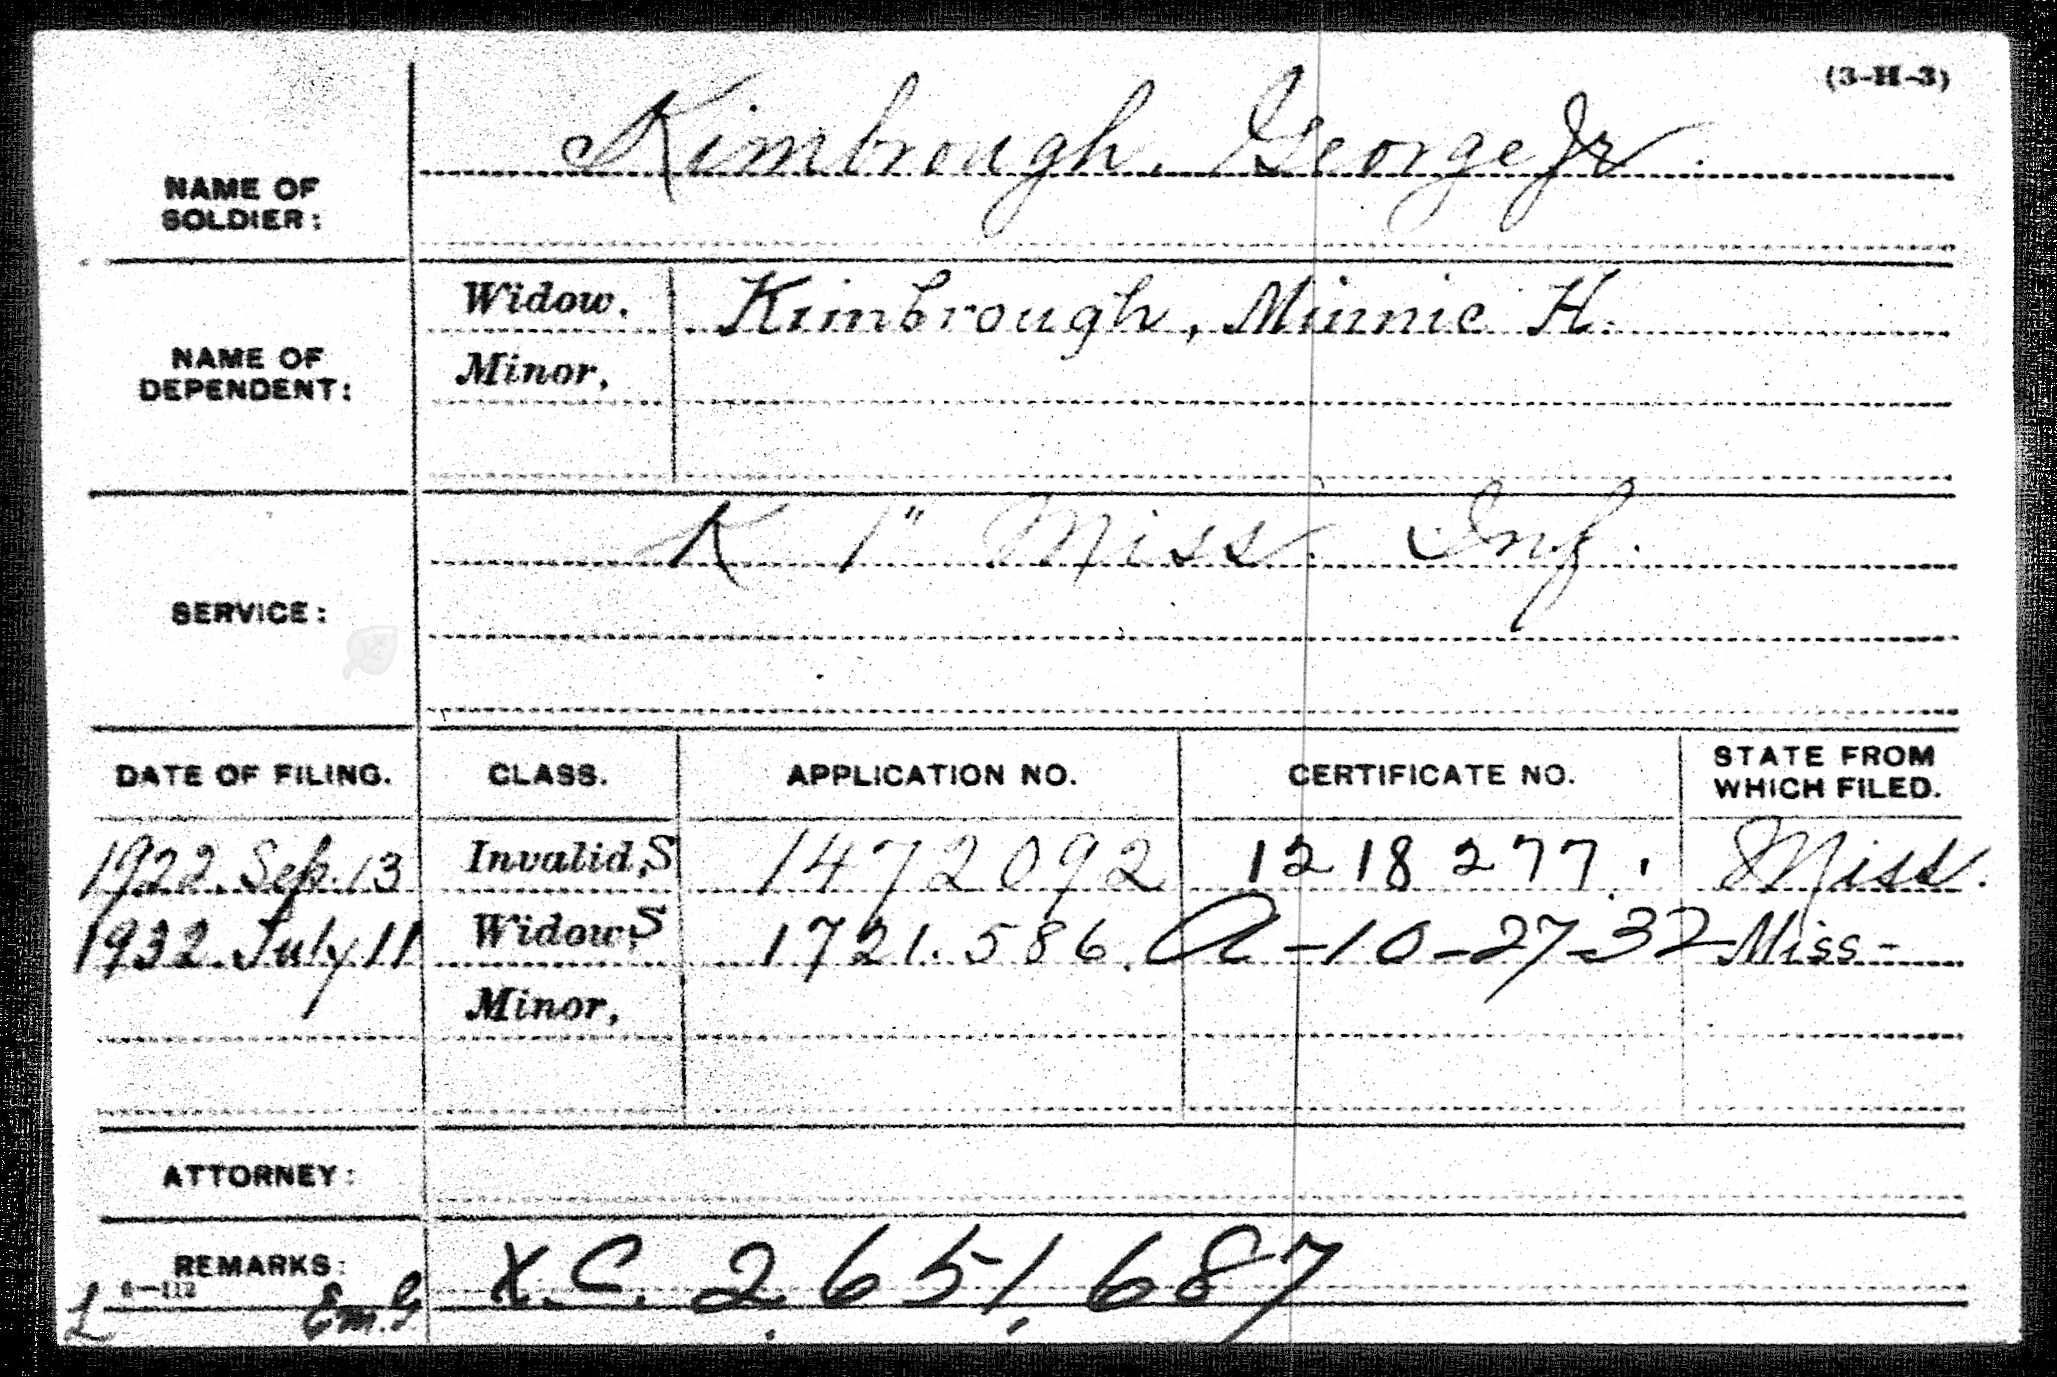 (3-H-3)
NAME OF SOLDIER: Kimbrough, George Jr.
NAME OF DEPENDENT: Widow, Kimbrough, Minnie H.
Minor,
SERVICE: K 1" Miss. Inf.
DATE OF FILING. CLASS. APPLICATION NO. CERTIFICATE NO. STATE FROM WHICH FILED.
1922. Sep. 13 Invalid, S 1472092 1218277. Miss.
1932. July 11 Widow, S 1721.586. A-10-27-32 Miss-
Minor,
ATTORNEY:
REMARKS: X.C. 2,651,687
3-112
L Em.G